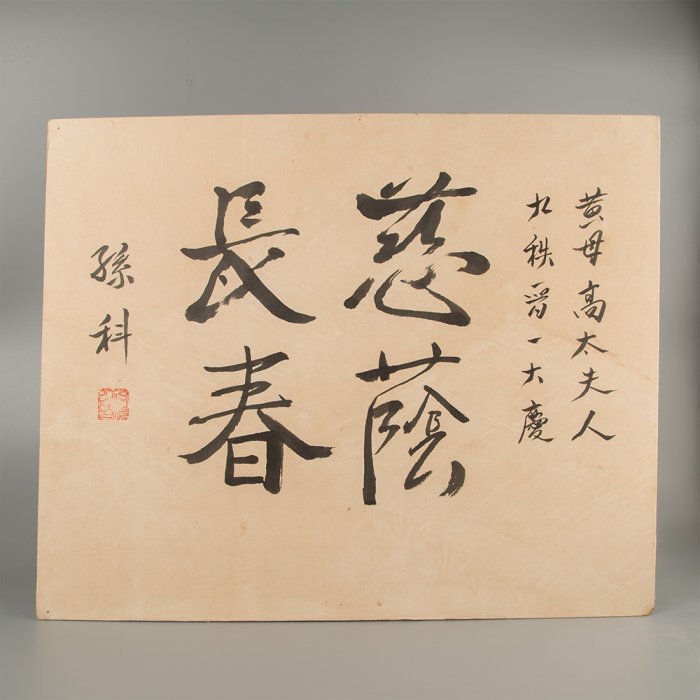 黃母高太夫人
九秩晋一大慶
慈蔭
長春
孫科